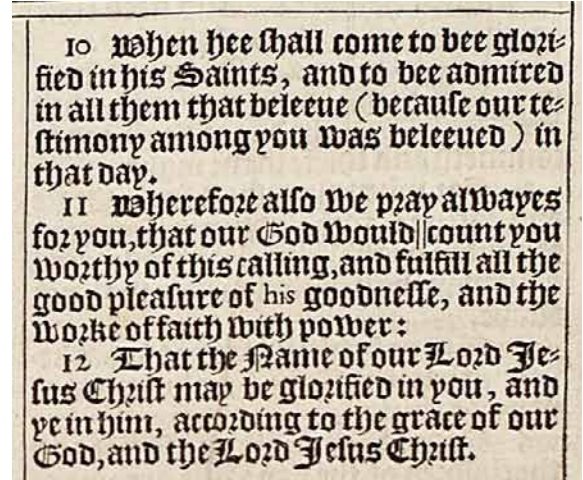 10 When hee shall come to bee glori-
fied in his Saints, and to bee admired
in all them that beleeue (because our te-
stimony among you was beleeued) in
that day.
11 Wherefore also we pray alwayes
for you, that our God would || count you
worthy of this calling, and fulfill all the
good pleasure of his goodnesse, and the
worke of faith with power:
12 That the Name of our Lord Je-
sus Christ may be glorified in you, and
ye in him, according to the grace of our
God, and the Lord Jesus Christ.